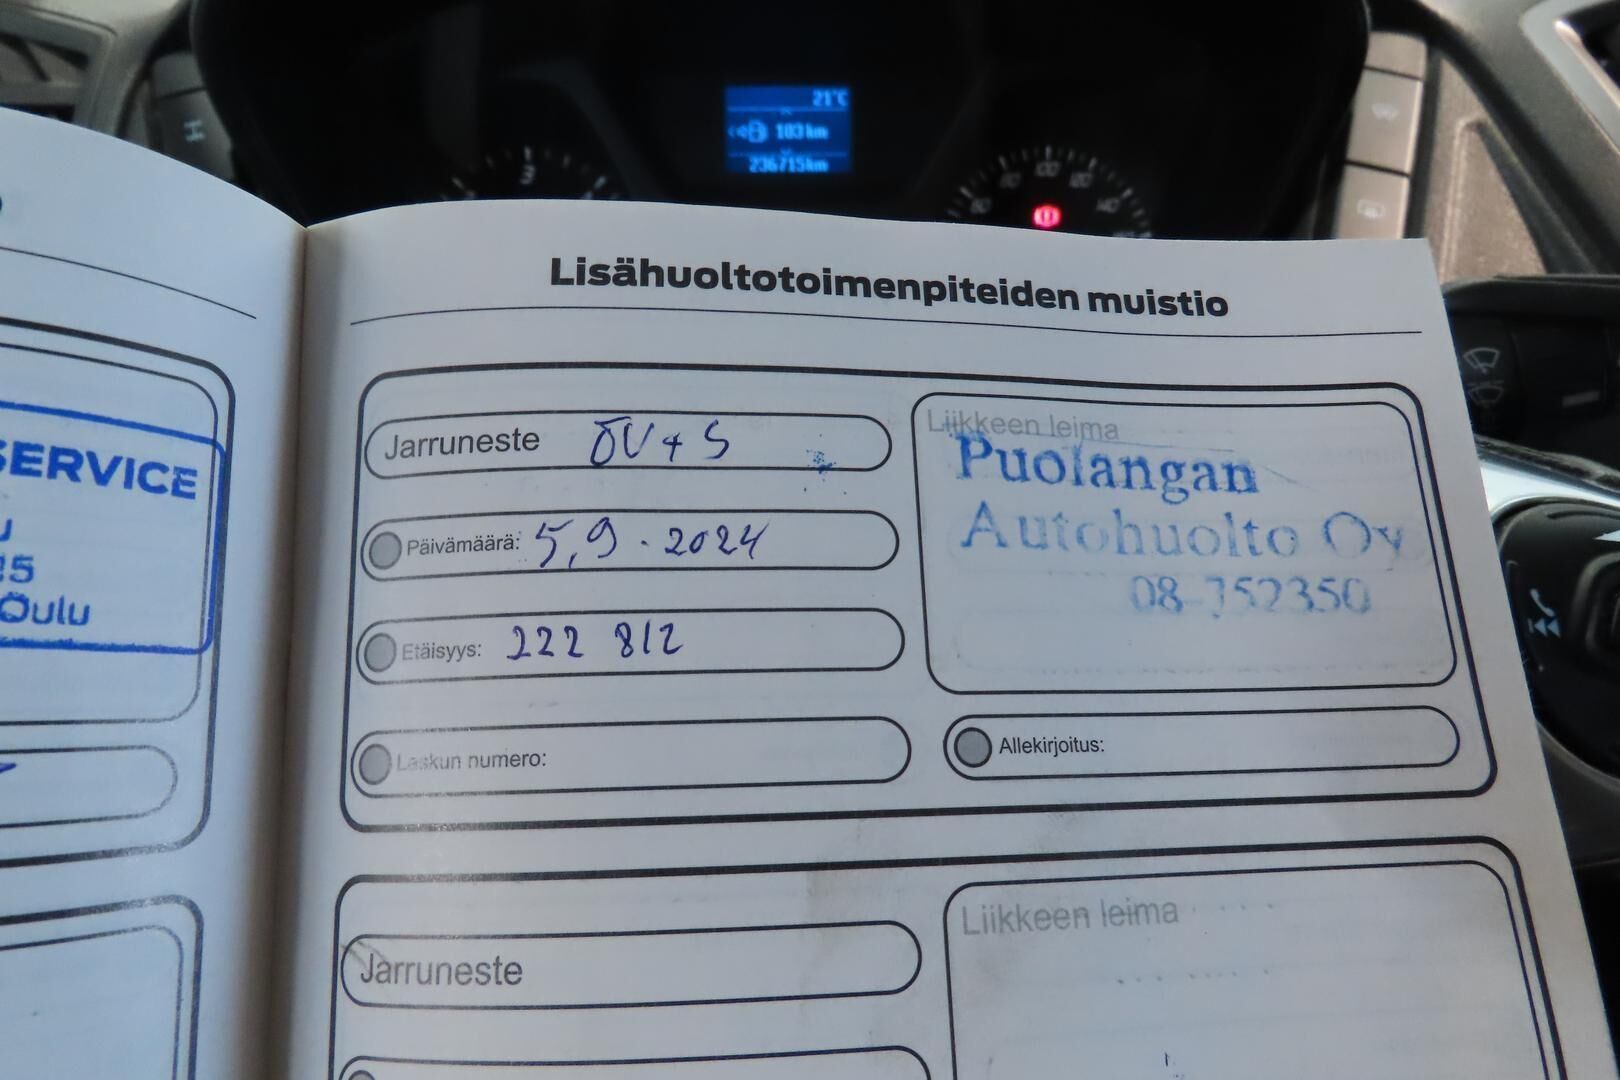 21°C
103 km
236715km
3
80
100
120
140
Lisähuoltotoimenpiteiden muistio
Jarruneste ÖV+S
Päivämäärä: 5,9.2024
Etäisyys: 222 812
Laskun numero:
Liikkeen leima
Puolangan
Autohuolto Oy
08-752350
Allekirjoitus:
Jarruneste
Liikkeen leima
SERVICE
Oulu